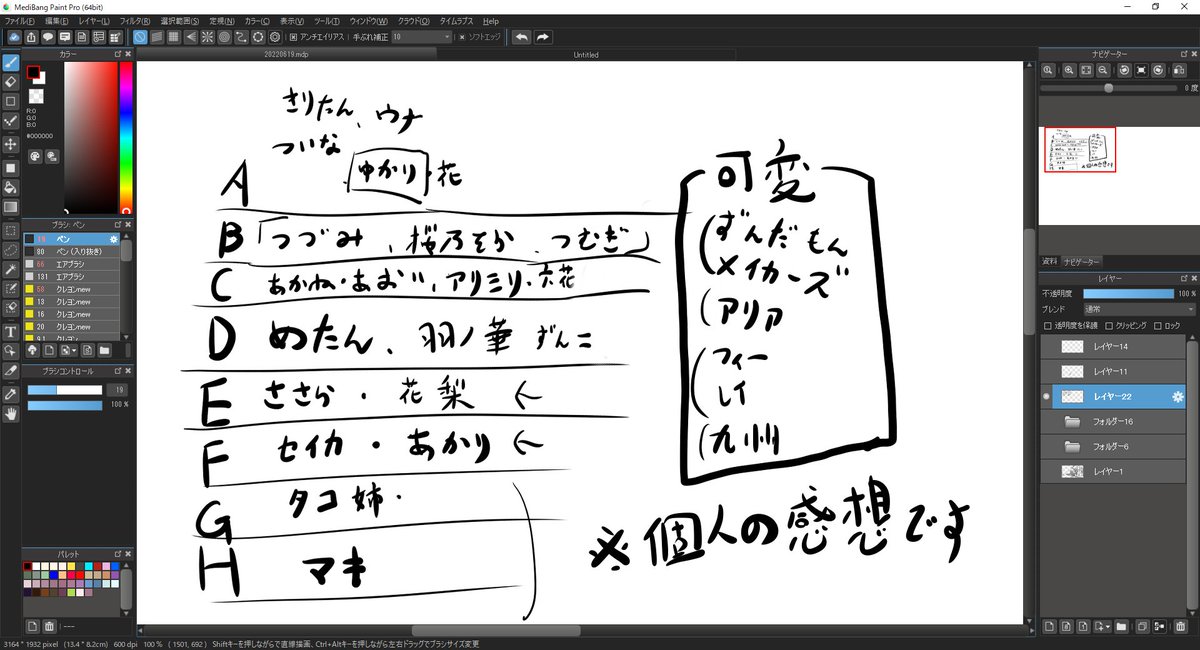 MediBang Paint Pro (64bit)
ファイル(F) 編集(E) レイヤー(L) フィルタ(R) 選択範囲(S) 定規(N) カラー(C) 表示(V) ツール(T) ウィンドウ(W) クラウド(O) タイムラプス Help
アンチエイリアス 手ぶれ補正 10 ソフトエッジ
20220619.mdp Untitled
カラー
R:0
G:0
B:0
#000000
ブラシ: ペン
19 ペン
80 ペン(入り抜き)
66 エアブラシ
131 エアブラシ
58 クレヨンnew
13 クレヨンnew
16 クレヨンnew
20 クレヨンnew
ブラシコントロール
19
100 %
パレット
---
きりたん、ウナ
ついな
A ゆかり・花
B 「つづみ、桜乃そら、つむぎ」
C あかね・あおい、アリミリ・六花
D めたん、羽ノ華 ずんこ
E ささら・花梨 ←
F セイカ・あかり ←
G タコ姉・
H マキ
可変
ずんだもん
メイカーズ
アリア
フィー
レイ
九州
※個人の感想です
ナビゲーター
0 度
資料 ナビゲーター
レイヤー
不透明度 100 %
ブレンド 通常
透明度を保護 クリッピング ロック
レイヤー14
レイヤー11
レイヤー22
フォルダー16
フォルダー6
レイヤー1
3164 * 1932 pixel (13.4 * 8.2cm) 600 dpi 100 % ( 1501, 692 ) Shiftキーを押しながらで直線描画、Ctrl+Altキーを押しながら左右ドラッグでブラシサイズ変更